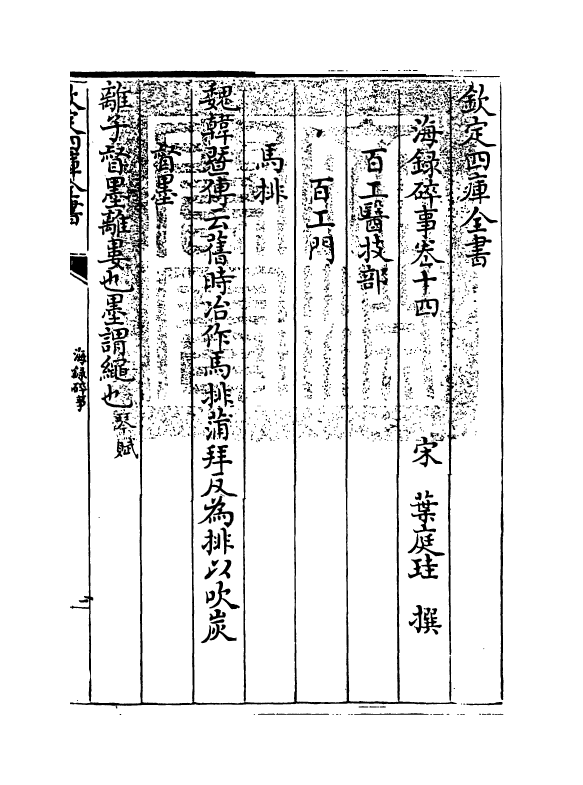 欽定四庫全書
海録碎事卷十四　宋　葉庭珪　撰
百工醫技部
百工門
馬排
魏韓暨傳云舊時冶作馬排蒲拜反為排以吹炭
督墨
離子督墨離婁也墨謂繩也琴賦
欽定四庫全書
海録碎事